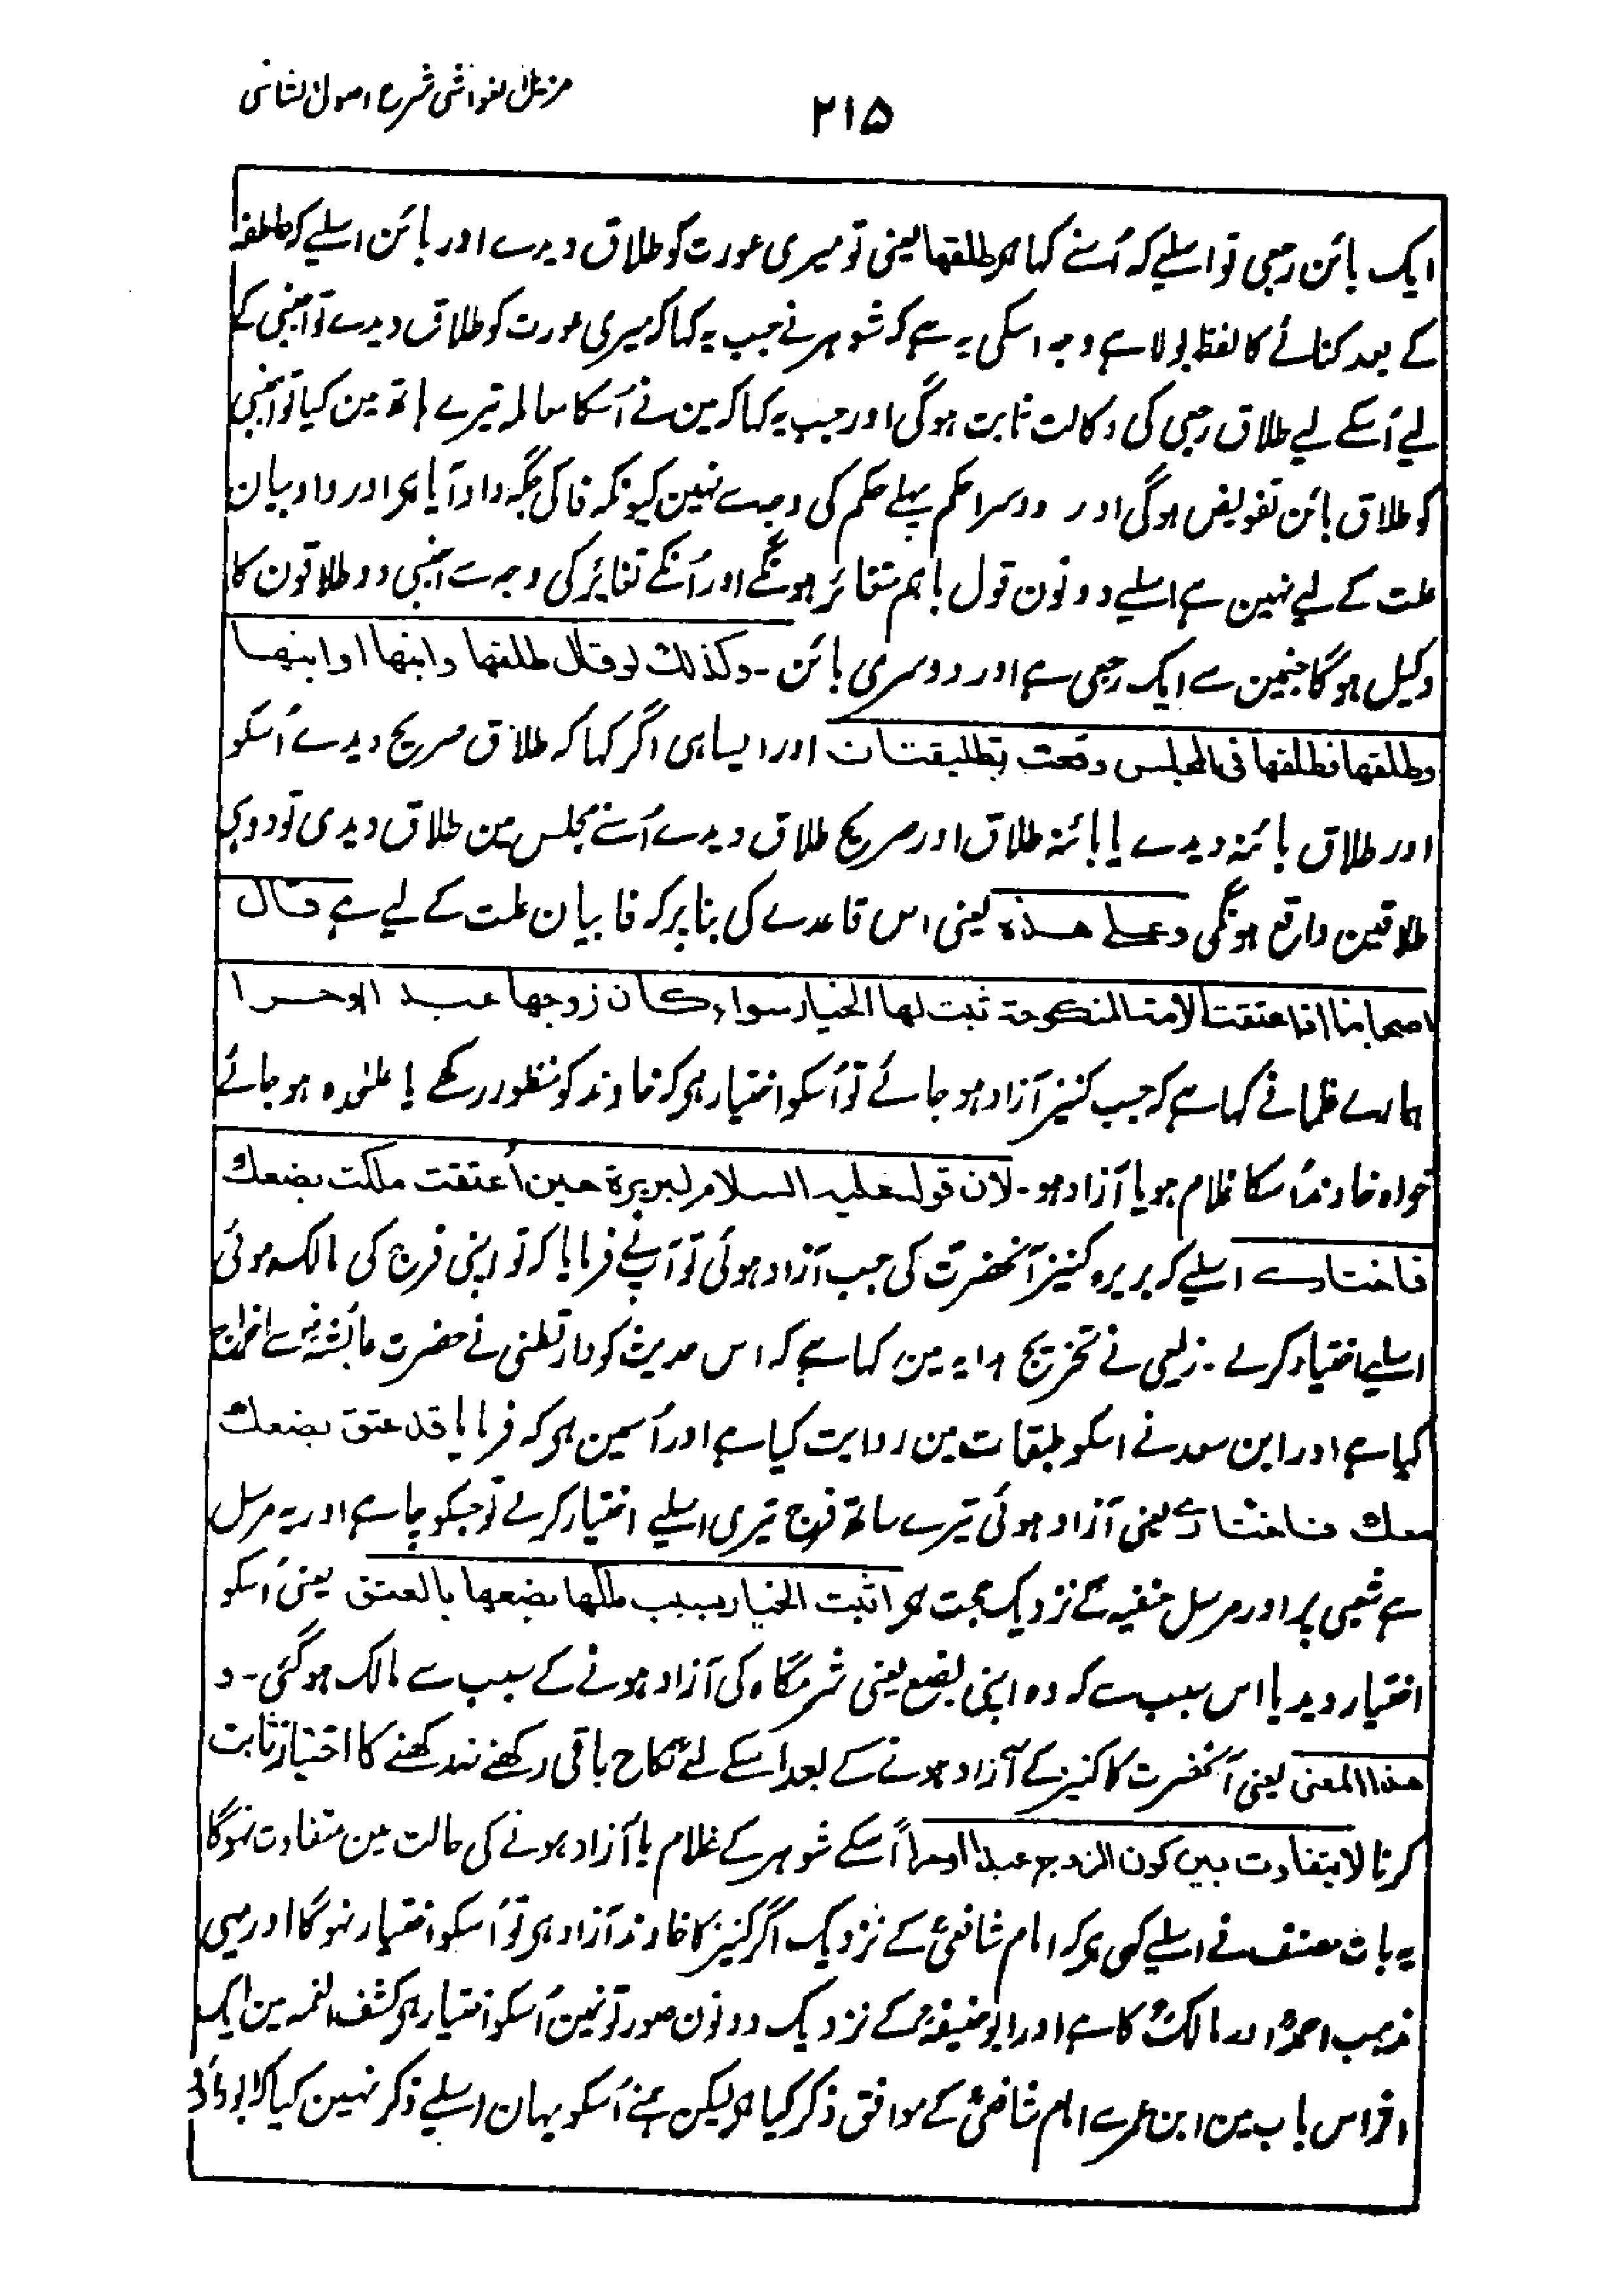 مزیل الغواشی شرح اصول الشاشی
۲۱۵
ایک بائن رجعی تو اسلیے کہ اُسنے کہا ہے طلقھا یعنی تو میری عورت کو طلاق دیدے اور بائن اسلیے کہ طلقھا
کے بعد کنائے کا لفظ بولا ہے وجہ اسکی یہ ہے کہ شوہر نے جب یہ کہا کہ میری عورت کو طلاق دیدے تو اجنبی کے
لیے اُسکے لیے طلاق رجعی کی وکالت ثابت ہوگی اور جب یہ کہا کہ مین نے اُسکا معاملہ تیرے ہاتھ مین کیا تو اجنبی
کو طلاق بائن تفویض ہوگی اور دوسرا حکم پہلے حکم کی وجہ سے نہین کیونکہ فا کی جگہ واو آیا ہے اور واو بیان
علت کے لیے نہین ہے اسلیے دونون قول باہم متغائر ہونگے اور اُنکے تغائر کی وجہ سے اجنبی دو طلاقون کا
وکیل ہوگا جنمین سے ایک رجعی ہے اور دوسری بائن ۔ وکذلک لو قال طلقھا وابنھا او ابنھا
وطلقھا فطلقھا فی المجلس وقعت تطلیقتان اور ایسا ہی اگر کہا کہ طلاق صریح دیدے اُسکو
اور طلاق بائنہ دیدے یا بائنہ طلاق اور صریح طلاق دیدے اُسنے مجلس مین طلاق دیدی تو دو ہی
طلاقین واقع ہونگی وعلی ھذہ یعنی اس قاعدے کی بنا پر کہ فا بیان علت کے لیے ہے قال
اصحابنا اذا عتقت الامة المنکوحة ثبت لھا الخیار سواء کان زوجھا عبدا او حرا
ہمارے علما نے کہا ہے کہ جب کنیز آزاد ہو جائے تو اُسکو اختیار ہے کہ خاوند کو منظور رکھے یا علٰحدہ ہو جائے
خواہ خاوند اُسکا غلام ہو یا آزاد ہو ۔ لان قولہ علیہ السلام لبریرة حین اُعتقت ملکت بضعک
فاختاری اسلیے کہ بریرہ کنیز آنحضرت کی جب آزاد ہوئی تو آپنے فرمایا کہ تو اپنی فرج کی مالک ہوئی
اسلیے اختیار کرلے ۔ زیلعی نے تخریج ہدایہ مین کہا ہے کہ اس حدیث کو دارقطنی نے حضرت عائشہؓ سے اخراج
کیا ہے اور ابن سعد نے اسکو طبقات مین روایت کیا ہے اور اُسمین ہے کہ فرمایا قد عتق بضعک
معک فاختاری یعنی آزاد ہوئی تیرے ساتھ فرج تیری اسلیے اختیار کرلے تو جسکو چاہے اور یہ مرسل
ہے شعبی پر اور مرسل حنفیہ کے نزدیک حجت ہے اثبت الخیار بسبب ملکھا بضعھا بالعتق یعنی اُسکو
اختیار دیدیا اس سبب سے کہ وہ اپنی بضع یعنی شرمگاہ کی آزاد ہونے کے سبب سے مالک ہوگئی ۔ و
ھذا المعنی یعنی آنحضرت کا کنیز کے آزاد ہونے کے بعد اسکے لئے نکاح باقی رکھنے نہ رکھنے کا اختیار ثابت
کرنا لا یتفاوت بین کون الزوج عبدا او حرا اُسکے شوہر کے غلام یا آزاد ہونے کی حالت مین متفاوت نہوگا
یہ بات مصنف نے اسلیے کہی ہے کہ امام شافعیؒ کے نزدیک اگر کنیز کا خاوند آزاد ہے تو اُسکو اختیار نہوگا اور یہی
مذہب احمدؒ اور مالکؒ کا ہے اور ابو حنیفہؒ کے نزدیک دونون صورتونمین اُسکو اختیار ہے کشف الغمہ مین ایک
اثر اس باب مین ابن عمر سے امام شافعیؒ کے موافق ذکر کیا ہے لیکن ہمنے اُسکو یہان اسلیے ذکر نہین کیا کہ ابوداؤد